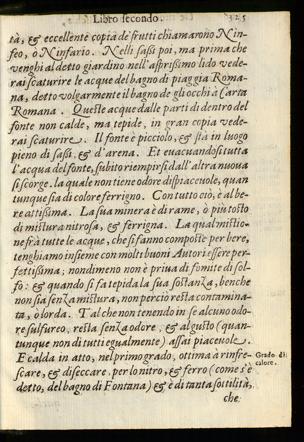 Libro secondo. 325
tà, & eccellente copia de frutti chiamarono Nin-
feo, ò Ninfario. Nelli sassi poi, ma prima che
venghi al detto giardino nell' asprissimo lido vede-
rai scaturire le acque del bagno di piaggia Roma-
na, detto volgarmente il bagno de gli occhi à Carta
Romana. Queste acque dalle parti di dentro del
fonte non calde, ma tepide, in gran copia vede-
rai scaturire. Il fonte è picciolo, & stà in luogo
pieno di sassi, & d'arena. Et euacuandosi tutta
l'acqua del fonte, subito riempirsi dall' altra nuoua
si scorge. la quale non tiene odore dispiaceuole, quan
tunque sia di colore ferrigno. Con tutto ciò, è al be-
re attissima. La sua minera è di rame, ò più tosto
di mistura nitrosa, & ferrigna. La qual mistio-
ne frà tutte le acque, che si fanno composte per bere,
tenghiamo insieme con molti buoni Autori essere per-
fettissima; nondimeno non è priua di fomite di sol-
fo: & quando si fa tepida la sua sostanza, benche
non sia senza mistura, non perciò resta contamina-
ta, ò lorda. Tal che non tenendo in se alcuno odo-
re sulfureo, resta senza odore, & al gusto (quan-
tunque non di tutti egualmente) assai piaceuole.
E calda in atto, nel primo grado, ottima à rinfre-
scare, & diseccare. per lo nitro, & ferro (come s'è
detto, del bagno di Fontana) & è di tanta sottilità,
che
Grado di
calore.